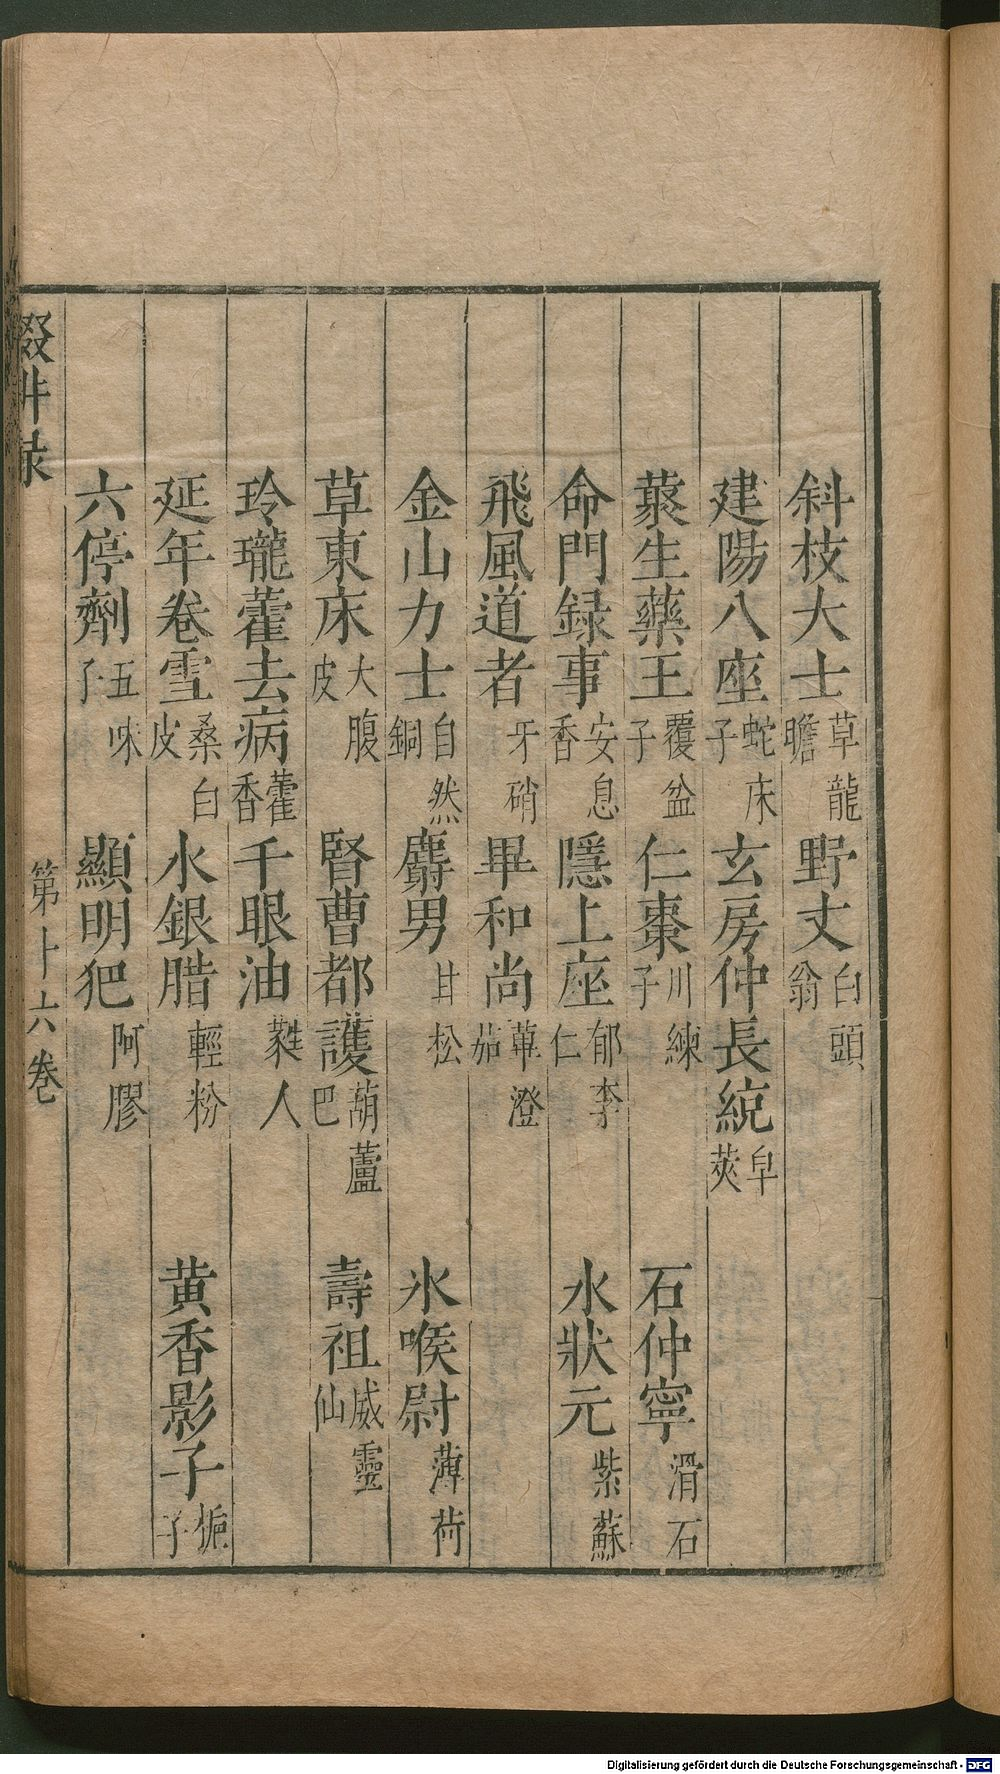 斜枝大士草龍瞻 野丈白頭翁
建陽八座蛇床子 玄房仲長統皁莢
藂生藥王覆盆子 仁棗川練子 石仲寧滑石
命門録事安息香 隱上座郁李仁 水狀元紫蘇
飛風道者牙硝 畢和尚蓽澄茄
金山力士自然銅 麝男甘松 氷喉尉薄荷
草東床大腹皮 腎曹都護葫蘆巴 壽祖威靈仙
玲瓏藿去病藿香 千眼油蕤人
延年卷雪桑白皮 水銀腊輕粉 黄香影子梔子
六停劑五味子 顯明犯阿膠
輟畊录 第十六卷
Digitalisierung gefördert durch die Deutsche Forschungsgemeinschaft - DFG